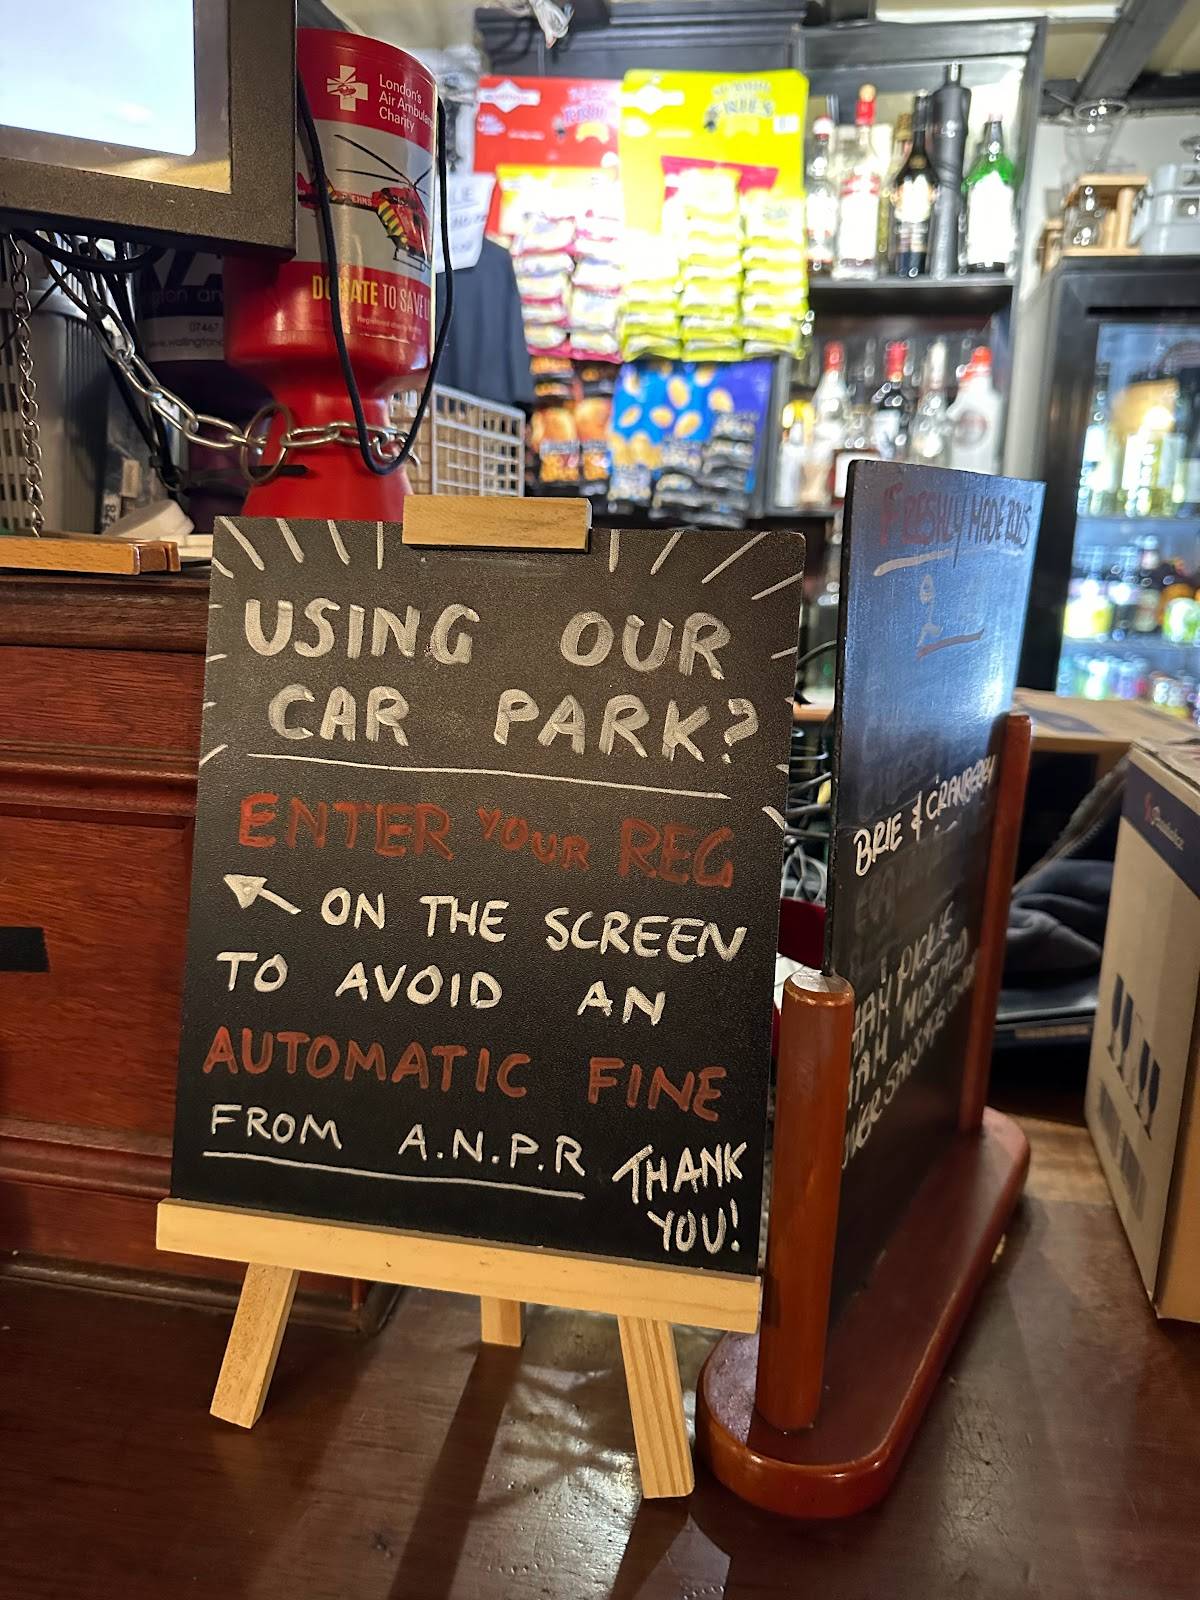 London's
Air Ambulance
Charity
DONATE TO SAVE
USING OUR
CAR PARK?
ENTER YOUR REG
ON THE SCREEN
TO AVOID AN
AUTOMATIC FINE
FROM A.N.P.R
THANK
YOU!
FRESHLY MADE
BRIE & CRANBERRY
HAM PICKLE
HAM MUSTARD
07467